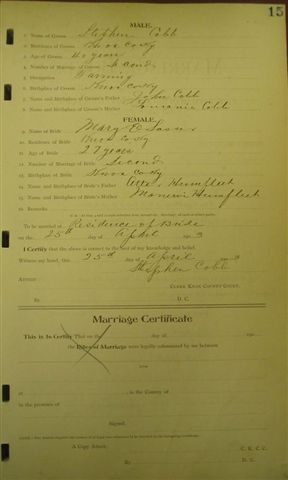 15
MALE.
1. Name of Groom Stephen Cobb
2. Residence of Groom Knox County
3. Age of Groom 40 years
4. Number of Marriage of Groom Second
5. Occupation Farming
6. Birthplace of Groom Knox County
7. Name and Birthplace of Groom's Father John Cobb
8. Name and Birthplace of Groom's Mother Cobb
FEMALE.
9. Name of Bride Mary E
10. Residence of Bride Knox County
11. Age of Bride 27 years
12. Number of Marriage of Bride Second
13. Birthplace of Bride Knox County
14. Name and Birthplace of Bride's Father Humfleet
15. Name and Birthplace of Bride's Mother Humfleet
16. Remarks
To be married at Residence of Bride
on the 25th day of April 3
I Certify that the above is correct to the best of my knowledge and belief.
Witness my hand, this 25th day of April 3
Stephen Cobb
Attest:
Clerk Knox County Court.
By D. C.
Marriage Certificate
This is to Certify That on the day of
the Rites of Marriage were legally solemnized by me between
and
at in the County of
in the presence of
Signed,
A Copy Attest:
C. K. C. C.
By D. C.